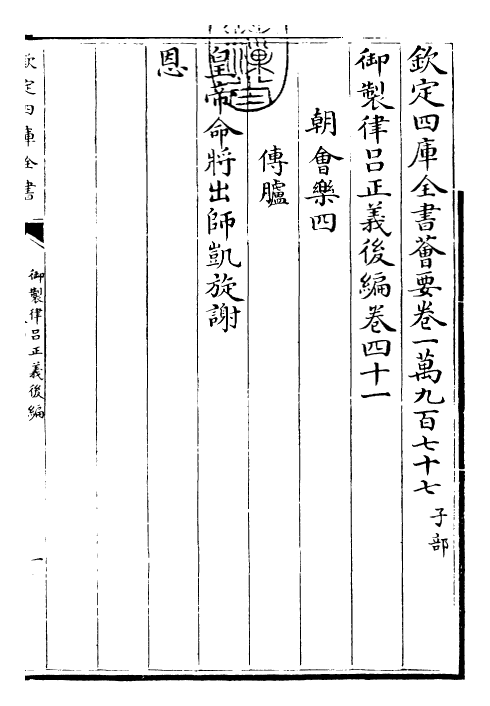 欽定四庫全書薈要卷一萬九百七十七 子部
御製律呂正義後編卷四十一
朝會樂四
傳臚
皇帝命將出師凱旋謝
恩
欽定四庫全書
御製律呂正義後編
一